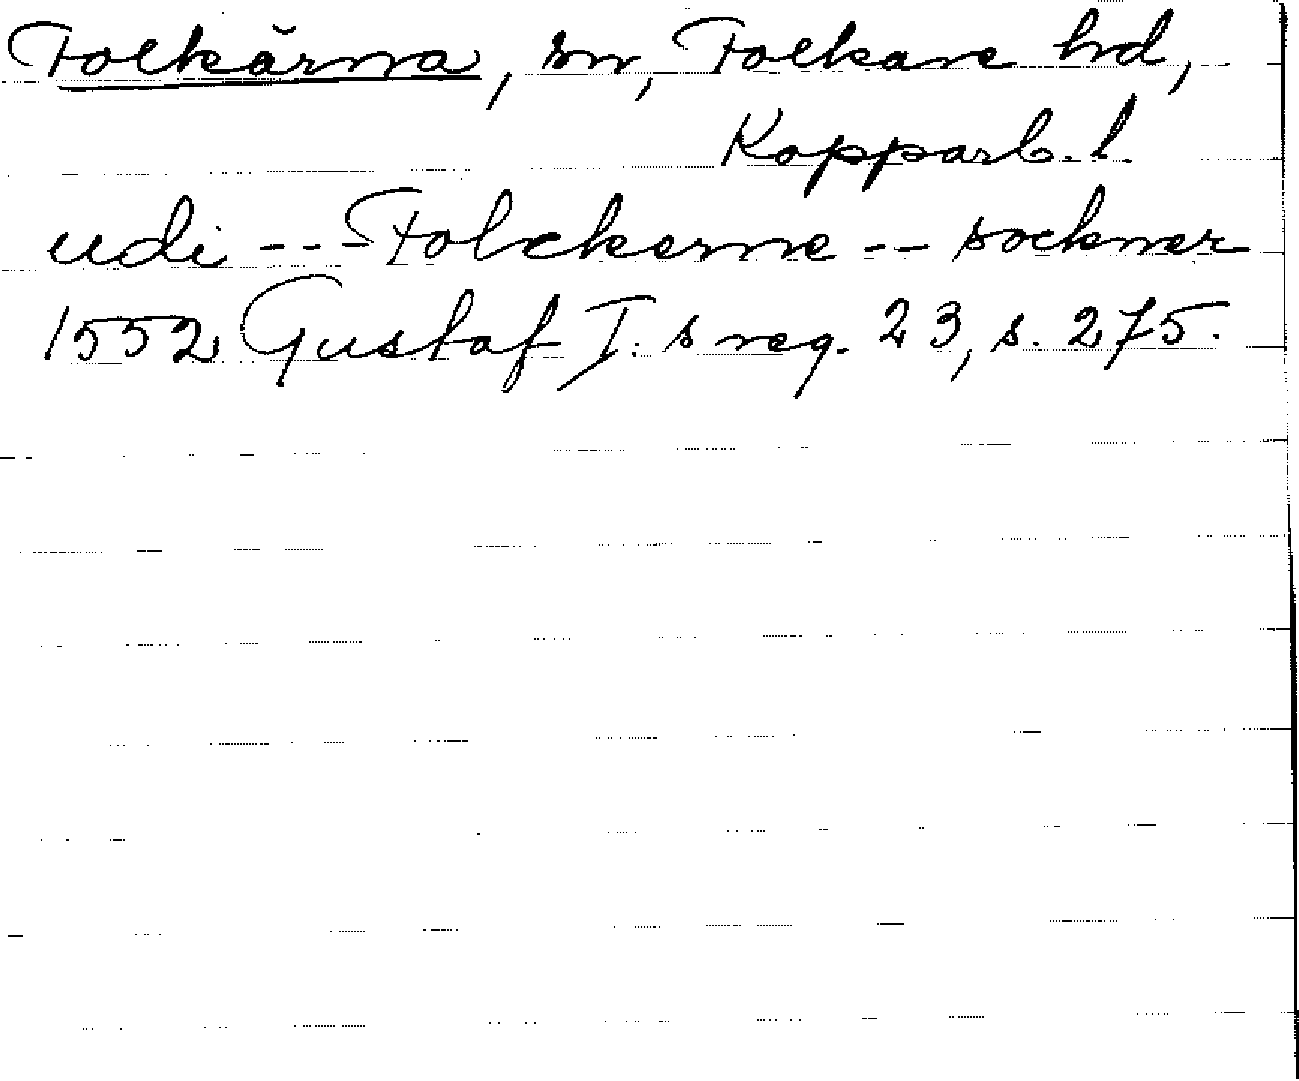 Folkärna, sn, Folkare hd,
Kopparb. l.
udi --- Folckerne -- sockner
1552 Gustaf I: s reg. 23, s. 275.